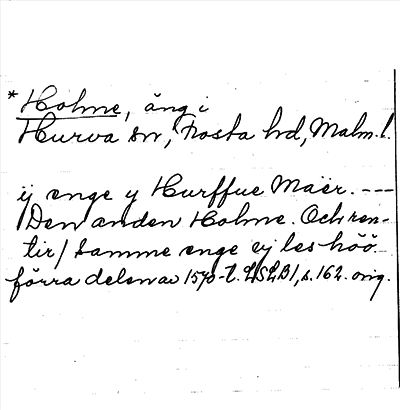 *Holme, äng i
Hurva sn, Frosta hd, Malm. l.
ij enge y Hurffue Maer. ---
/Den anden Holme. Och ren-
tir/ samme enge ej les höö.
förra delen av 1570-t. LSLB1, s. 162. orig.